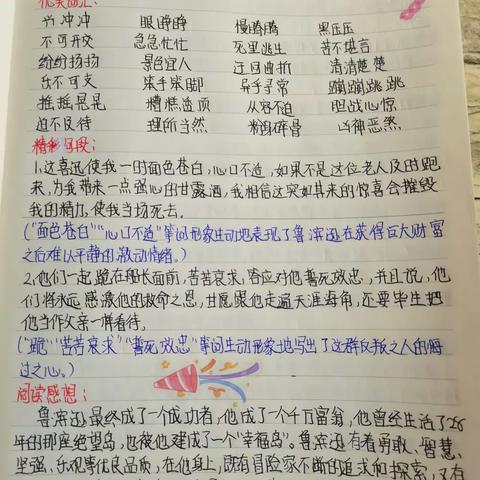 优美词汇：
兴冲冲 眼睁睁 慢腾腾 黑压压
不可开交 急急忙忙 死里逃生 苦不堪言
纷纷扬扬 景色宜人 迂回曲折 清清楚楚
乐不可支 笨手笨脚 异乎寻常 蹦蹦跳跳
摇摇晃晃 糟糕透顶 从容不迫 胆战心惊
迫不及待 理所当然 粉身碎骨 凶神恶煞
精彩句段：
1.这喜讯使我一时面色苍白，心口不适，如果不是这位老人及时跑
来，为我带来一点强心的甘露酒，我相信这突如其来的惊喜会摧毁
我的精力，使我当场死去。
(“面色苍白”“心口不适”等词形象生动地表现了鲁滨逊在获得巨大财富
之后难以平静的激动情绪。)
2.他们一起跪在船长面前，苦苦哀求，答应对他誓死效忠，并且说，他
们将永远感激他的救命之恩，甘愿跟他走遍天涯海角，还要毕生把
他当作父亲一样看待。
(“跪”“苦苦哀求”“誓死效忠”等词生动形象地写出了这群反叛之人的悔
过之心。)
阅读感想：
鲁滨逊最终成了一个成功者，他成了一个千万富翁，他曾经生活了28
年的那座绝望岛，也被他建成了一个“幸福岛”。鲁滨逊有着勇敢、智慧、
坚强、乐观等优良品质，在他身上，既有冒险家不断的追求和探索，又有